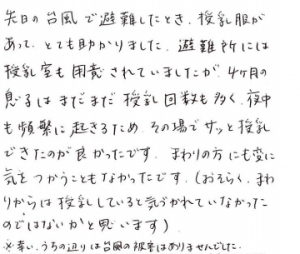 先日の台風で避難したとき、授乳服が
あって、とても助かりました。避難所には
授乳室も用意されていましたが、4ヶ月の
息子はまだまだ授乳回数も多く、夜中
も頻繁に起きるため、その場でサッと授乳
できたのが良かったです。まわりの方にも変に
気をつかうこともなかったです。(おそらく、まわ
りからは授乳していると気づかれていなかった
のではないかと思います)
※幸い、うちの辺りは台風の被害はありませんでした。